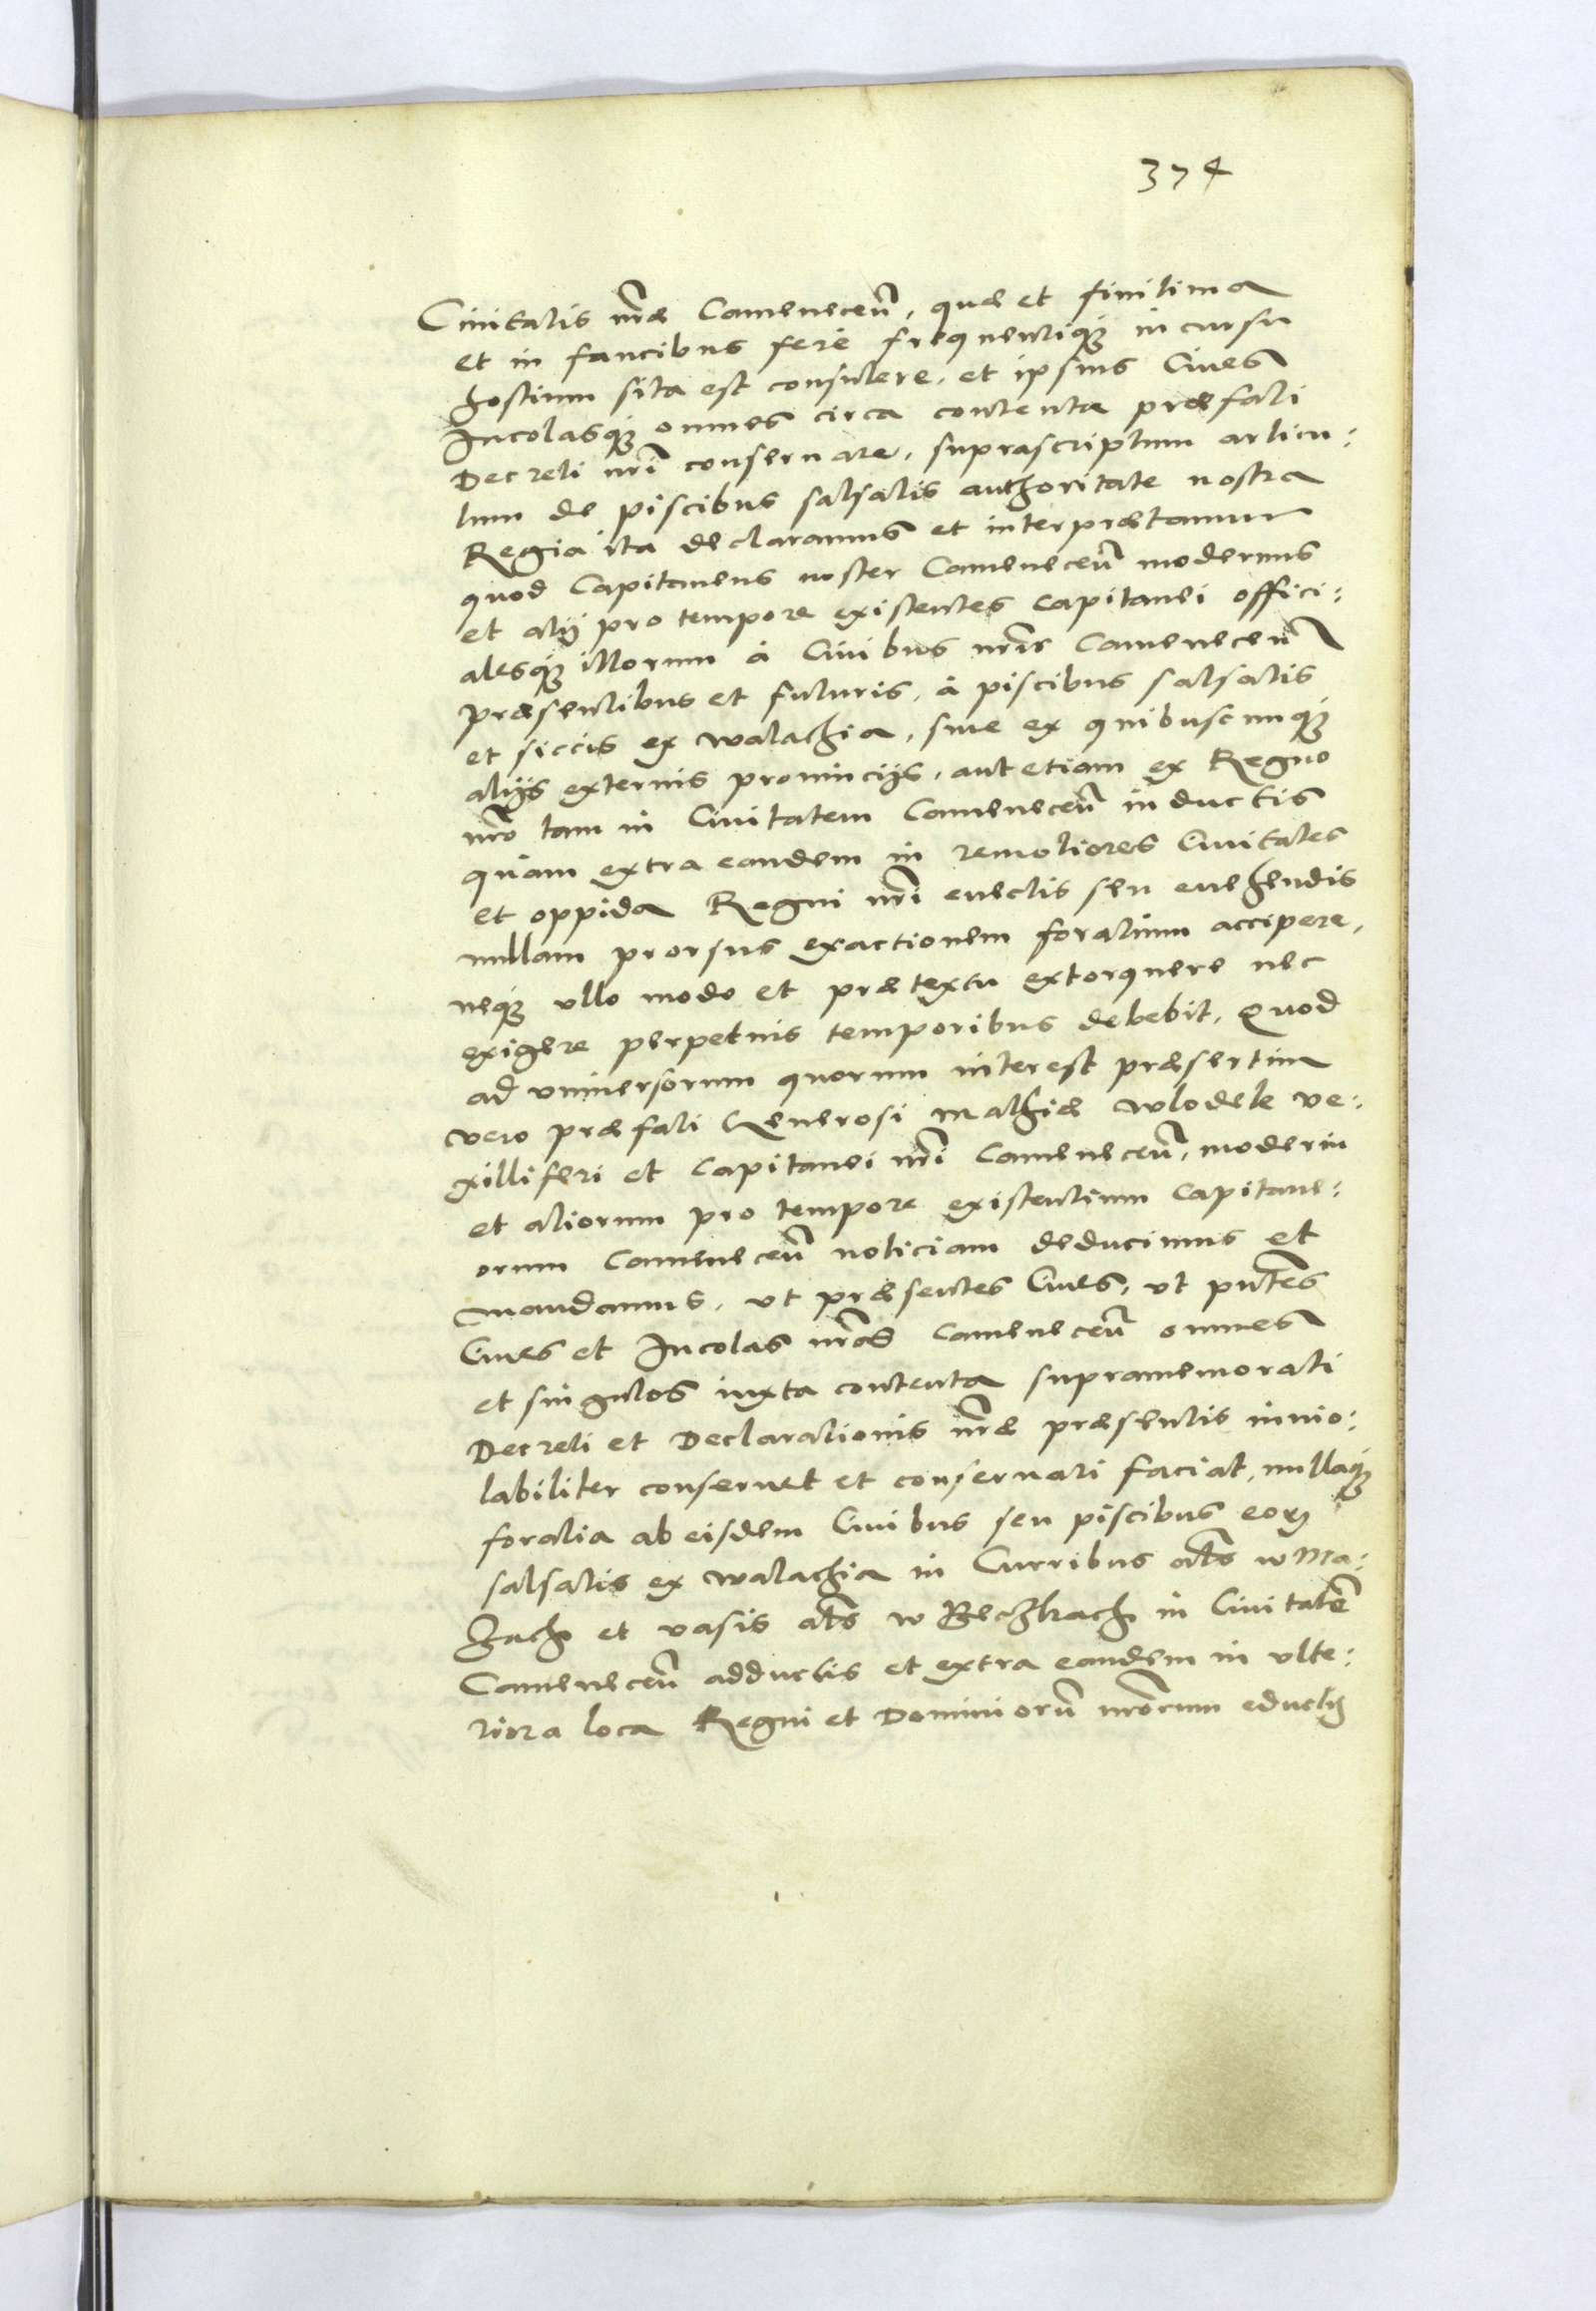 374
Ciuitatis nr̃ae Camenecen̄, quae et finitima
et in faucibus ferè frequentiq́ue incursu
hostium sita est consulere, et ipsius Ciues
Incolasq́ue omnes circa contenta praefati
Decreti nr̃i conseruare, suprascriptum articu:
lum de piscibus salsatis authoritate nostra
Regia ita declaramus et interpraetamur
quod Capitaneus noster Camenecen̄ modernus
et alij pro tempore existentes Capitanei offici:
alesq́ue illorum à Ciuibus nr̃is Camenecen̄
praesentibus et futuris, à piscibus salsatis
et siccis ex walachia, siue ex quibuscunq́ue
alijs externis prouincijs, aut etiam ex Regno
nr̃o tam in Ciuitatem Camenecen̄ inductis
quàm extra eandem in remotiores Ciuitates
et oppida Regni nr̃i euectis seu euehendis
nullam prorsus exactionem foralium accipere,
neq́ue vllo modo et praetextu extorquere nec
exigere perpetuis temporibus debebit, Quod
ad vniuersorum quorum interest praesertim
vero praefati Generosi Mathiae Wlodek ve:
xilliferi et Capitanei nr̃i Camenecen̄, moderni
et aliorum pro tempore existentium Capitane:
orum Camenecen̄ noticiam deducimus et
mandamus, vt praesentes Ciues, vt pn̄tes
Ciues et Incolas nr̃os Camenecen̄ omnes
et singulos iuxta contenta supramemorati
Decreti et Declarationis nr̃ae praesentis inuio:
labiliter conseruet et conseruari faciat, nullaq́ue
foralia ab eisdem Ciuibus seu piscibus eoꝝ
salsatis ex walachia in Curribus al̄s w Ma:
zach et vasis al̄s w Beczkach in Ciuitatē
Camenecen̄ adductis et extra eandem in vlte:
riora loca Regni et Dominiorū nr̃orum eductis